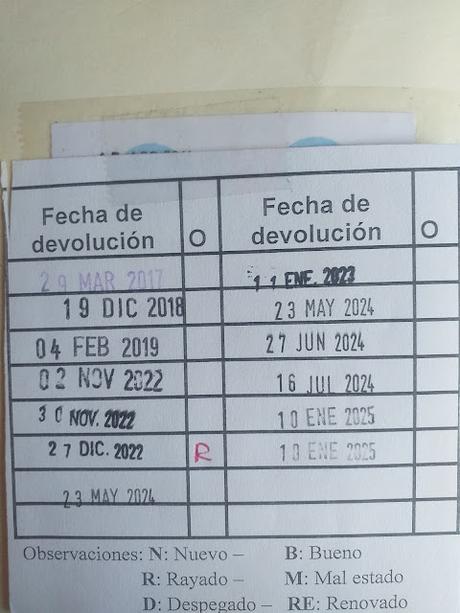 Fecha de devolución O Fecha de devolución O
29 MAR 2017 11 ENE. 2023
19 DIC 2018 23 MAY 2024
04 FEB 2019 27 JUN 2024
02 NOV 2022 16 JUL 2024
30 NOV. 2022 10 ENE 2025
27 DIC. 2022 R 10 ENE 2025
23 MAY 2024
Observaciones: N: Nuevo – B: Bueno
R: Rayado – M: Mal estado
D: Despegado – RE: Renovado